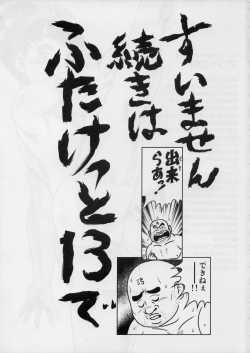 すいません
続きは
ふたけっと13で
出来らあっ!
できねぇ
ーー!!